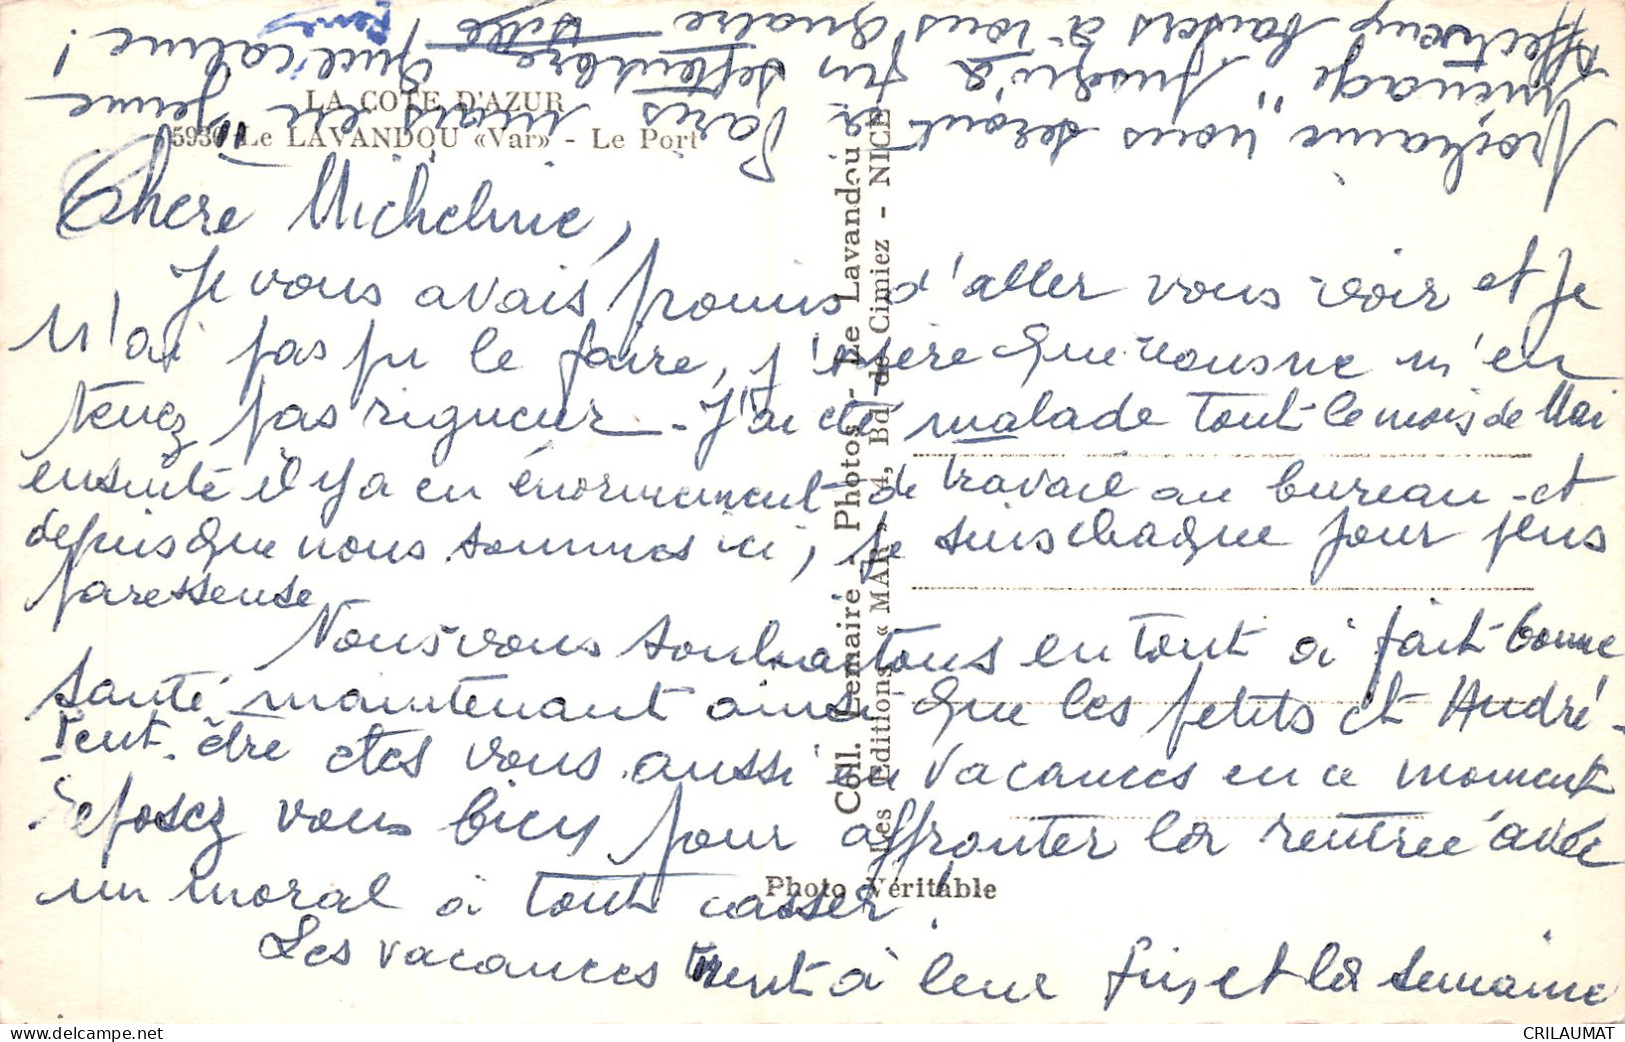 LA COTE D'AZUR
5930 Le LAVANDOU «Var» - Le Port
Chère Micheline,
Je vous avais promis d'aller vous voir et je
n'ai pas pu le faire, j'espère que vous ne m'en
tenez pas rigueur - J'ai été malade tout le mois de Mai
ensuite il y a eu énormément de travail au bureau - et
depuis que nous sommes ici, je suis chaque jour plus
paresseuse
Nous vous souhaitons en tout à fait bonne
santé maintenant ainsi que les petits et André -
Peut-être êtes vous aussi en vacances en ce moment
reposez vous bien pour affronter la rentrée avec
un moral à tout casser !
Les vacances tirent à leur fin, et la semaine
prochaine nous serons à Paris mais en "jeune
ménage" jusqu'à fin septembre Quel calme !
Affectueux baisers à vous quatre
Coll. Lemaire - Photos - Le Lavandou
Les Editions « MAR » 4, Bd de Cimiez - NICE
Photo Véritable
CRILAUMAT